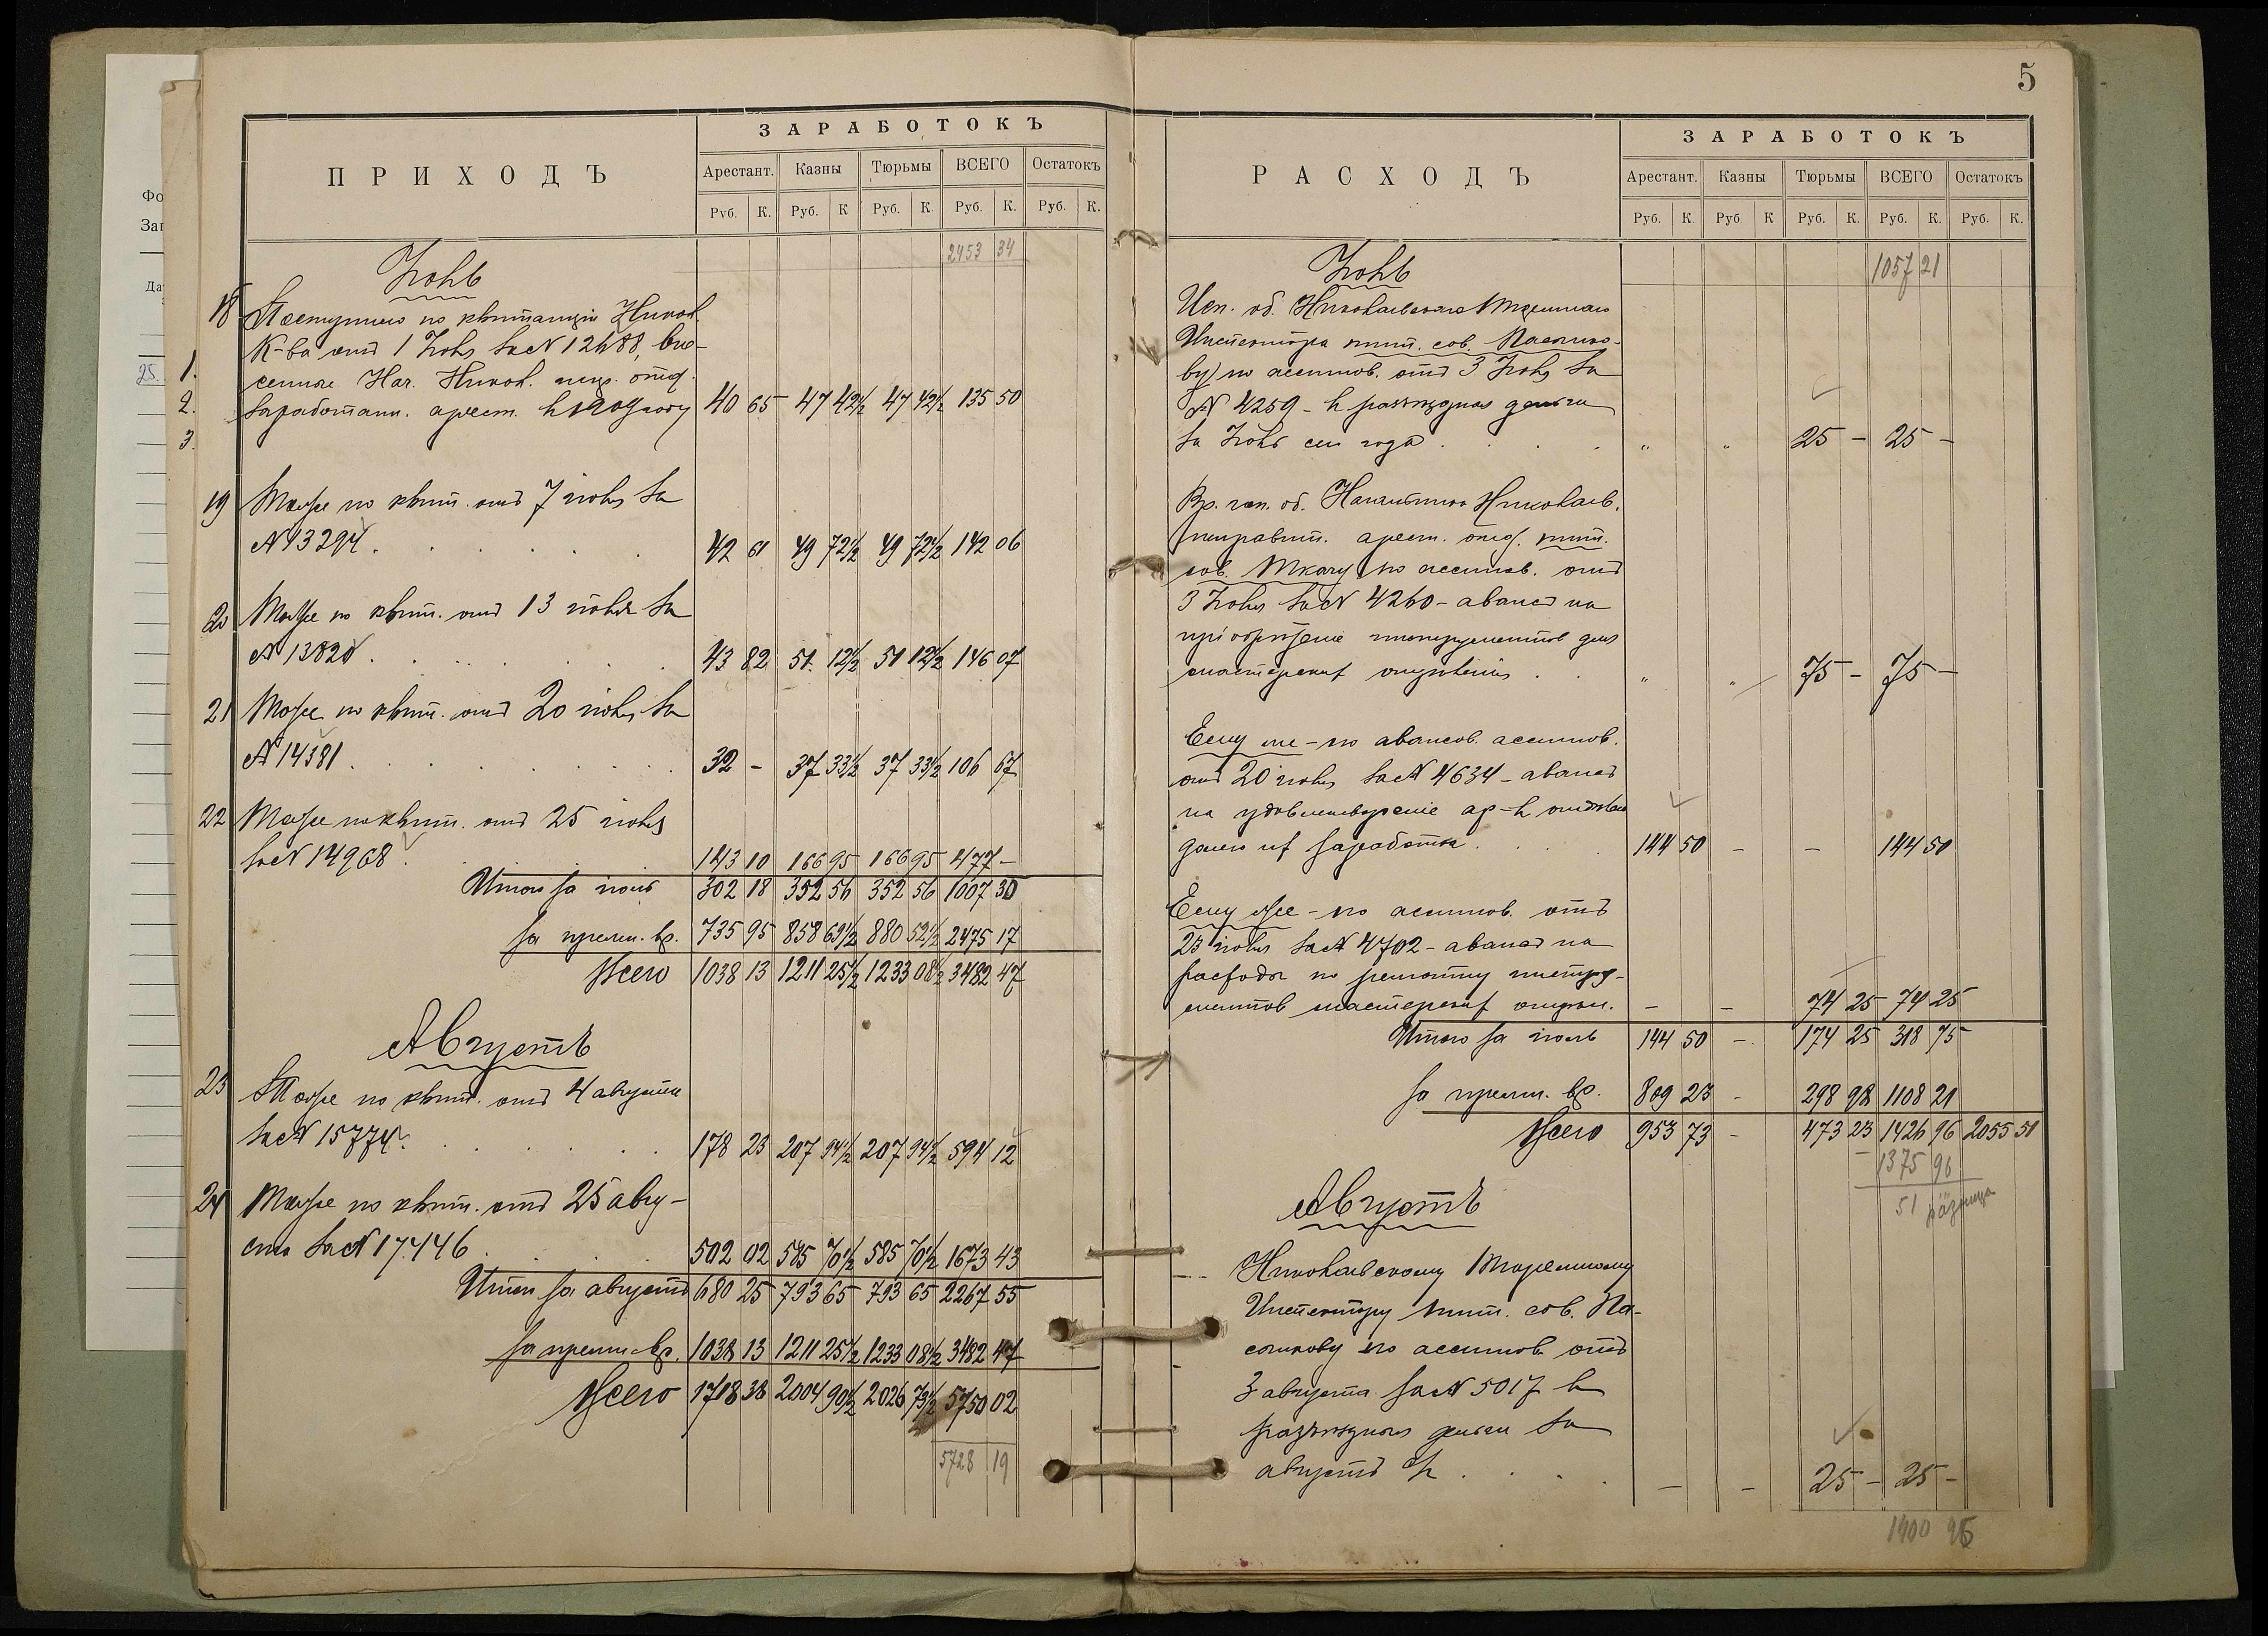 5
ПРИХОДЪ
ЗАРАБОТОКЪ
Арестант. Казны Тюрьмы ВСЕГО Остатокъ
Руб. К. Руб. К Руб. К. Руб. К. Руб. К.
2453 34
Іюль
18 Поступило по квитанціи Никол.
К-ва отъ 1 Іюля за № 12688, вне-
сенные Нач. Никол. испр. отд.
заработан. арест. 40 65 47 42½ 47 42½ 135 50
19 Тоже по квит. отъ 7 іюля за
№ 13294. 42 61 49 72½ 49 72½ 142 06
20 Тоже по квит. отъ 13 іюля за
№ 13820. 43 82 51. 12½ 51 12½ 146 07
21 Тоже по квит. отъ 20 іюля за
№ 14381. 32 - 37 33½ 37 33½ 106 67
22 Тоже по квит. отъ 25 іюля
за № 14968. 143 10 166 95 166 95 477 -
Итого за іюль 302 18 352 56 352 56 1007 30
за прежн. вр. 735 95 858 69½ 880 52½ 2475 17
Всего 1038 13 1211 25½ 1233 08½ 3482 47
Августъ
23 Тоже по квит. отъ 4 августа
за № 15774. 178 23 207 94½ 207 94½ 594 12
24 Тоже по квит. отъ 25 авгу-
ста за № 17446. 502 02 585 70½ 585 70½ 1673 43
Итого за августъ 680 25 793 65 793 65 2267 55
за прежн. вр. 1038 13 1211 25½ 1233 08½ 3482 47
Всего 1718 38 2004 90½ 2026 73½ 5750 02
5728 19
РАСХОДЪ
ЗАРАБОТОКЪ
Арестант. Казны Тюрьмы ВСЕГО Остатокъ
Руб. К. Руб К Руб. К. Руб. К. Руб. К.
1057 21
Іюль
Исп. об. Николаевскаго Тюремнаго
Инспектора тит. сов.
по ассигнов. отъ 3 Іюля за
№ 4259 - разъѣздныя деньги
за Іюль сего года . . . " " 25 - 25 -
Вр. исп. об. Начальника Николаев.
исправит. арест. отд. тит.
сов. Ткачу по ассигнов. отъ
3 Іюля за № 4260 - авансъ на
пріобрѣтеніе инструментовъ для
мастерскихъ отдѣленія . . " " 75 - 75 -
Ему же - по авансов. ассигнов.
отъ 20 іюля за № 4634 - авансъ
на удовлетвореніе ар-въ
долею ихъ заработка. 144 50 - - 144 50
Ему же - по ассигнов. отъ
23 іюля за № 4702 - авансъ на
расходы по ремонту инстру-
ментовъ мастерскихъ отдѣл. - - 74 25 74 25
Итого за іюль 144 50 - 174 25 318 75
за прежн. вр. 809 23 - 298 98 1108 21
Всего 953 73 - 473 23 1426 96 2055 51
1375 96
51 разница
Августъ
Николаевскому Тюремному
Инспектору тит. сов. Па-
по ассигнов. отъ
3 августа за № 5017
разъѣздныя деньги за
августъ . . . - - 25 - 25 -
1400 96
Фо
Заг
Да
25
1.
2.
3.